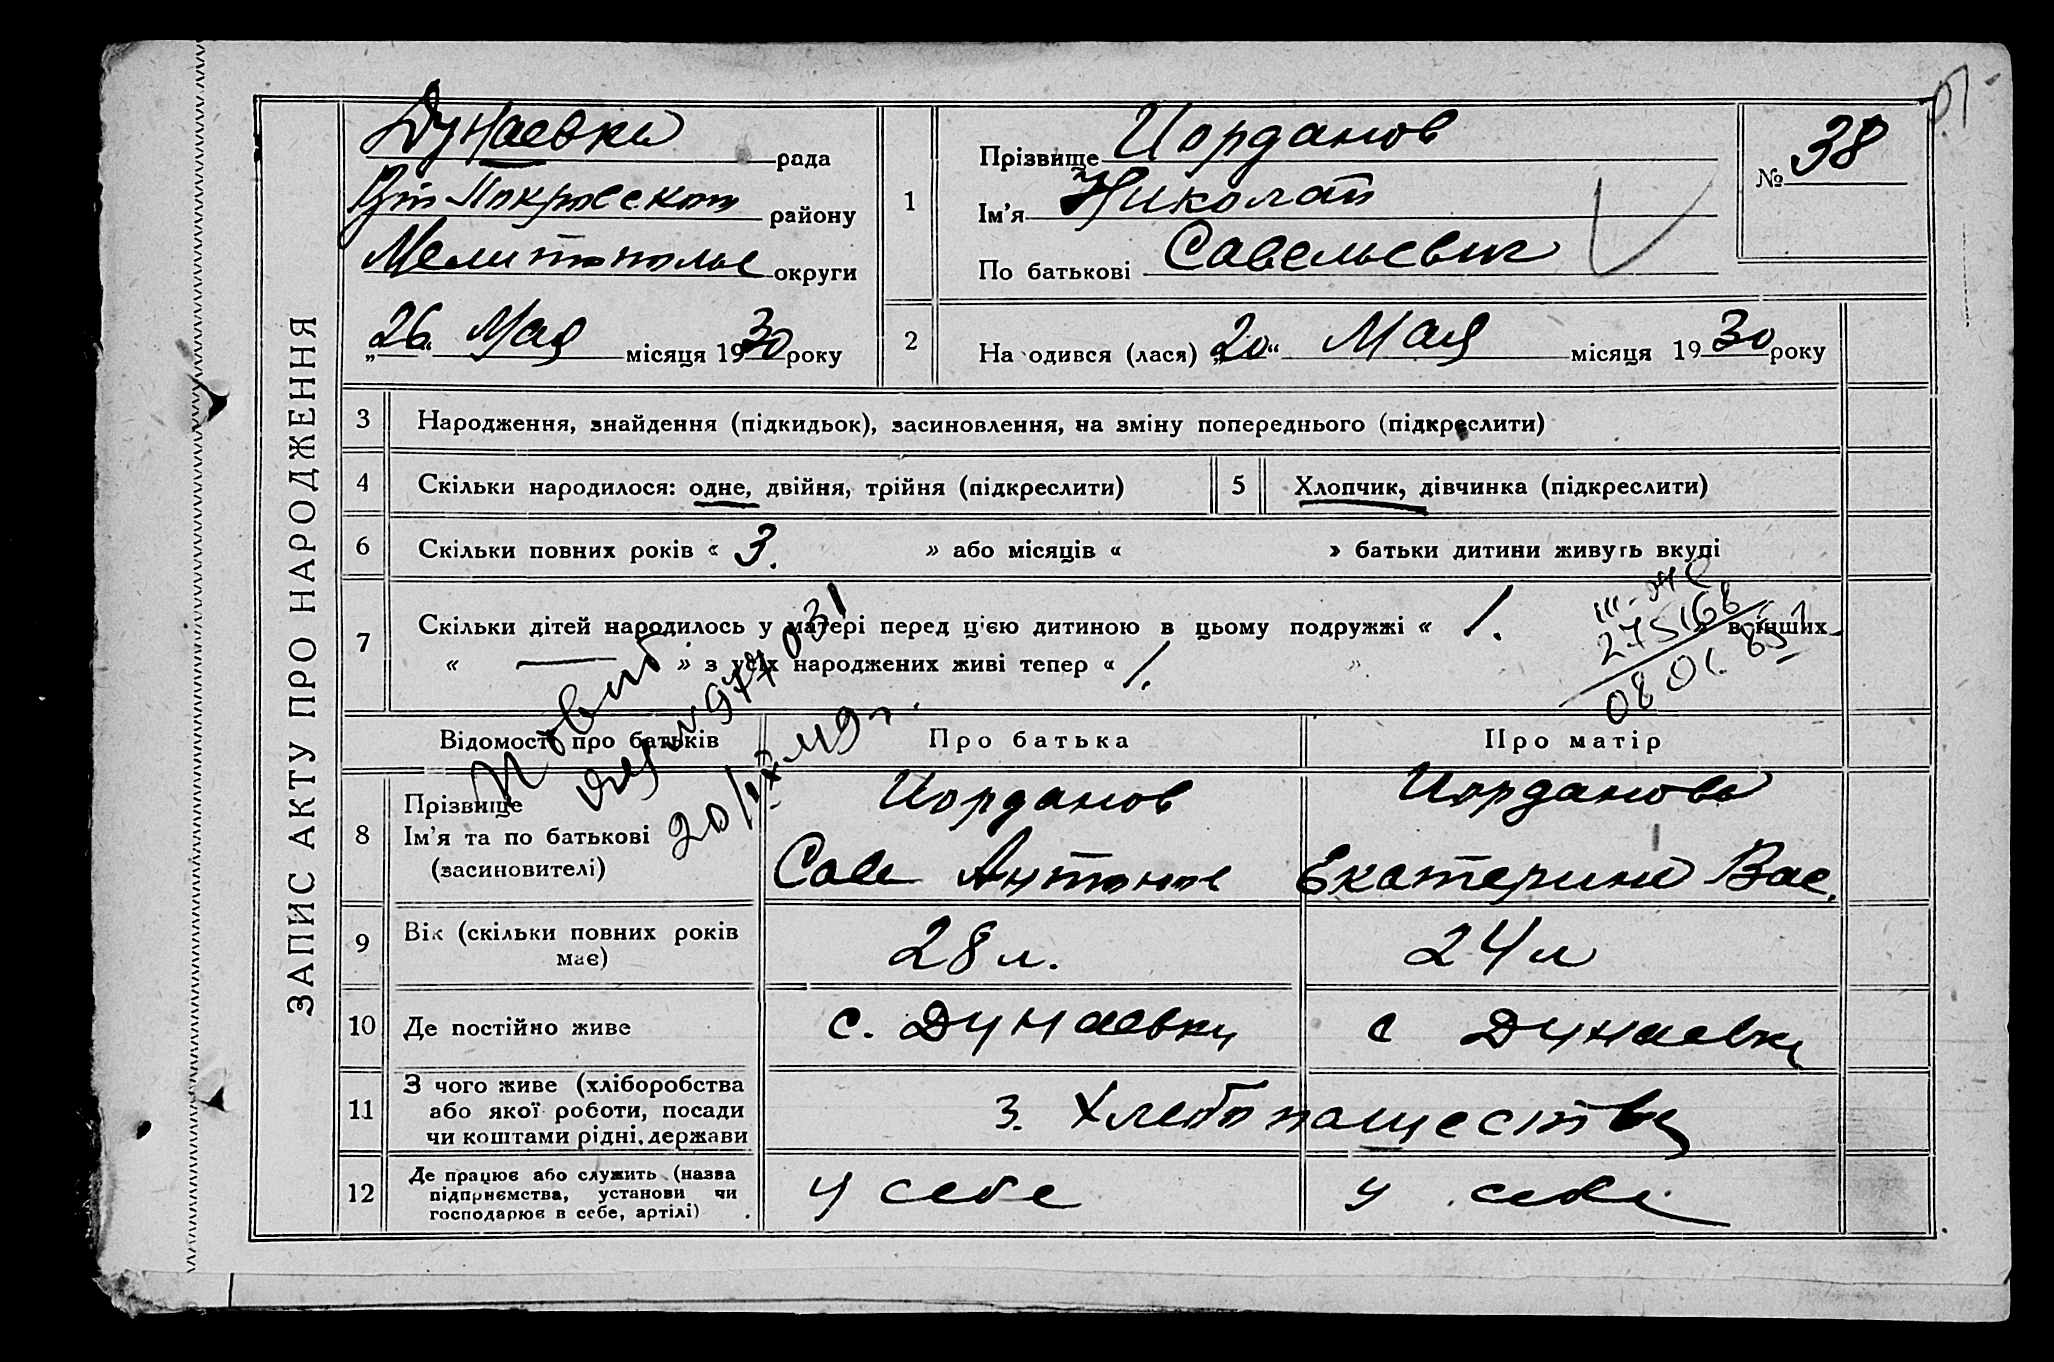 ЗАПИС АКТУ ПРО НАРОДЖЕННЯ
Дунаевка рада
району
Мелитополье округи
„26“ Мая місяця 1930 року
1
Прізвище Иорданов
Ім'я Николай
По батькові Савельевич
№ 38
2
Народився (лася) „20“ Мая місяця 1930 року
3 Народження, знайдення (підкидьок), засиновлення, на зміну попереднього (підкреслити)
4 Скільки народилося: одне, двійня, трійня (підкреслити)
5 Хлопчик, дівчинка (підкреслити)
6 Скільки повних років « 3. » або місяців « » батьки дитини живуть вкупі
7 Скільки дітей народилось у матері перед цією дитиною в цьому подружжі « 1. » в інших
« — » з усіх народжених живі тепер « 1. »
275168
08 01. 85
977031
Відомості про батьків Про батька Про матір
8 Прізвище
Ім'я та по батькові
(засиновителі)
Иорданов
Сава Антонов
Иорданова
Екатерина Вас.
9 Вік (скільки повних років має) 28 л. 24 л
10 Де постійно живе с. Дунаевки с Дунаевки
11 З чого живе (хліборобства
або якої роботи, посади
чи коштами рідні, держави
з. Хлебопашества
12 Де працює або служить (назва
підприємства, установи чи
господарює в себе, артілі)
у себе у себе